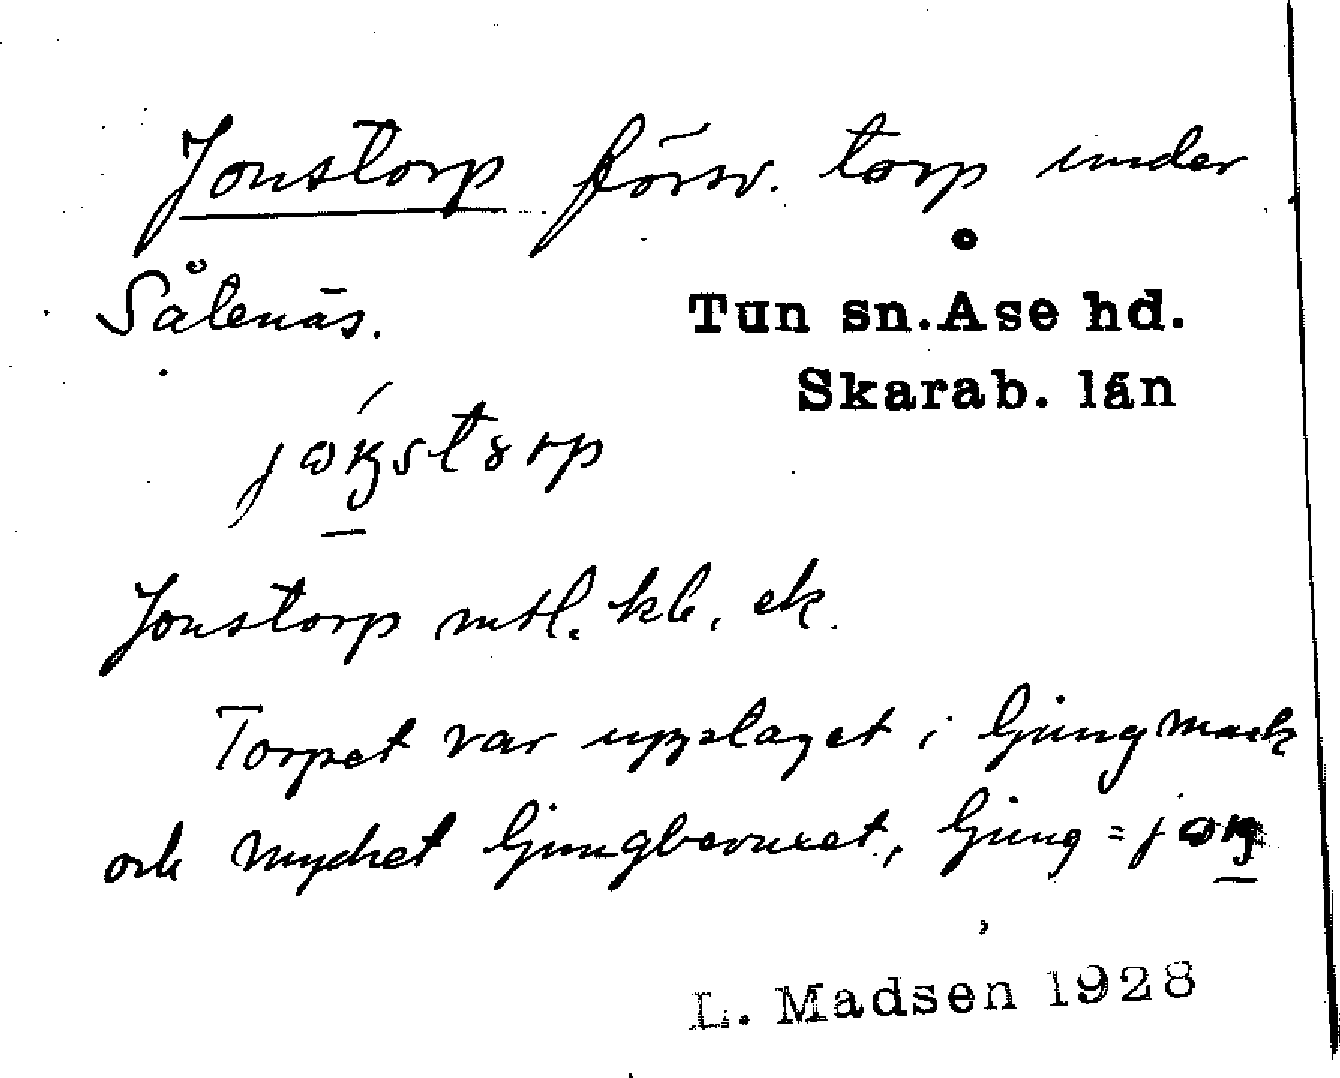 Jonstorp försv. torp under
Såtenäs.
Tun sn. Åse hd.
Skarab. län
jɷŋstɤrp
Jonstorp mtl. kb. ek.
Torpet var upptaget i ljungmark
och mycket ljungbevuxet, ljung = jɷŋ
L. Madsen 1928